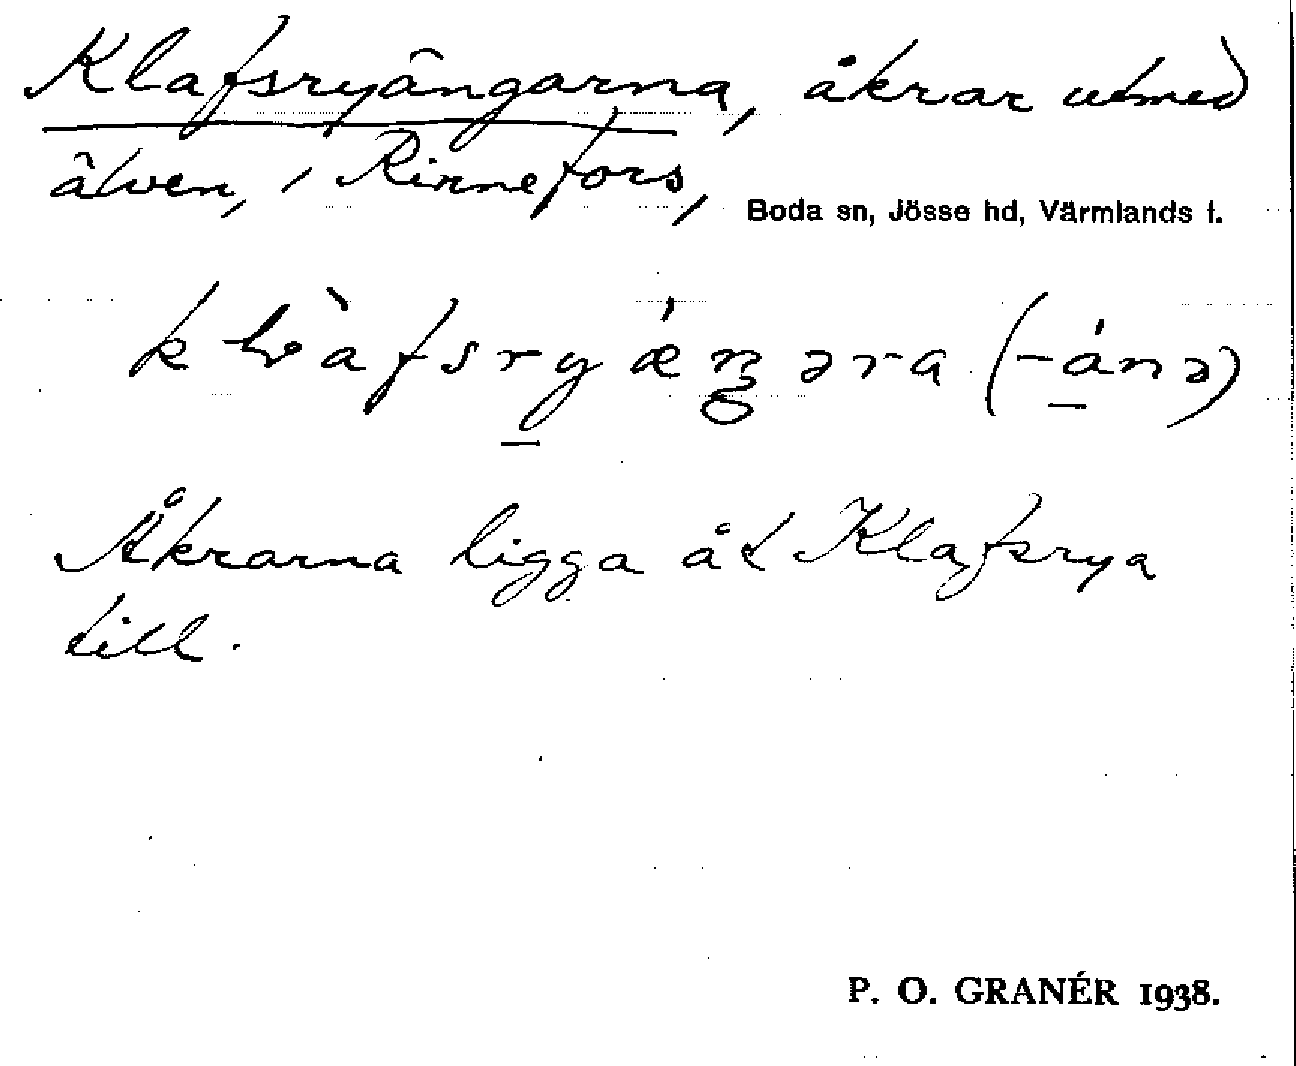 Klafsryängarna, åkrar utmed
älven, i Rinnefors,
Boda sn, Jösse hd, Värmlands l.
Åkrarna ligga åt Klafsrya
till.
P. O. GRANÉR 1938.